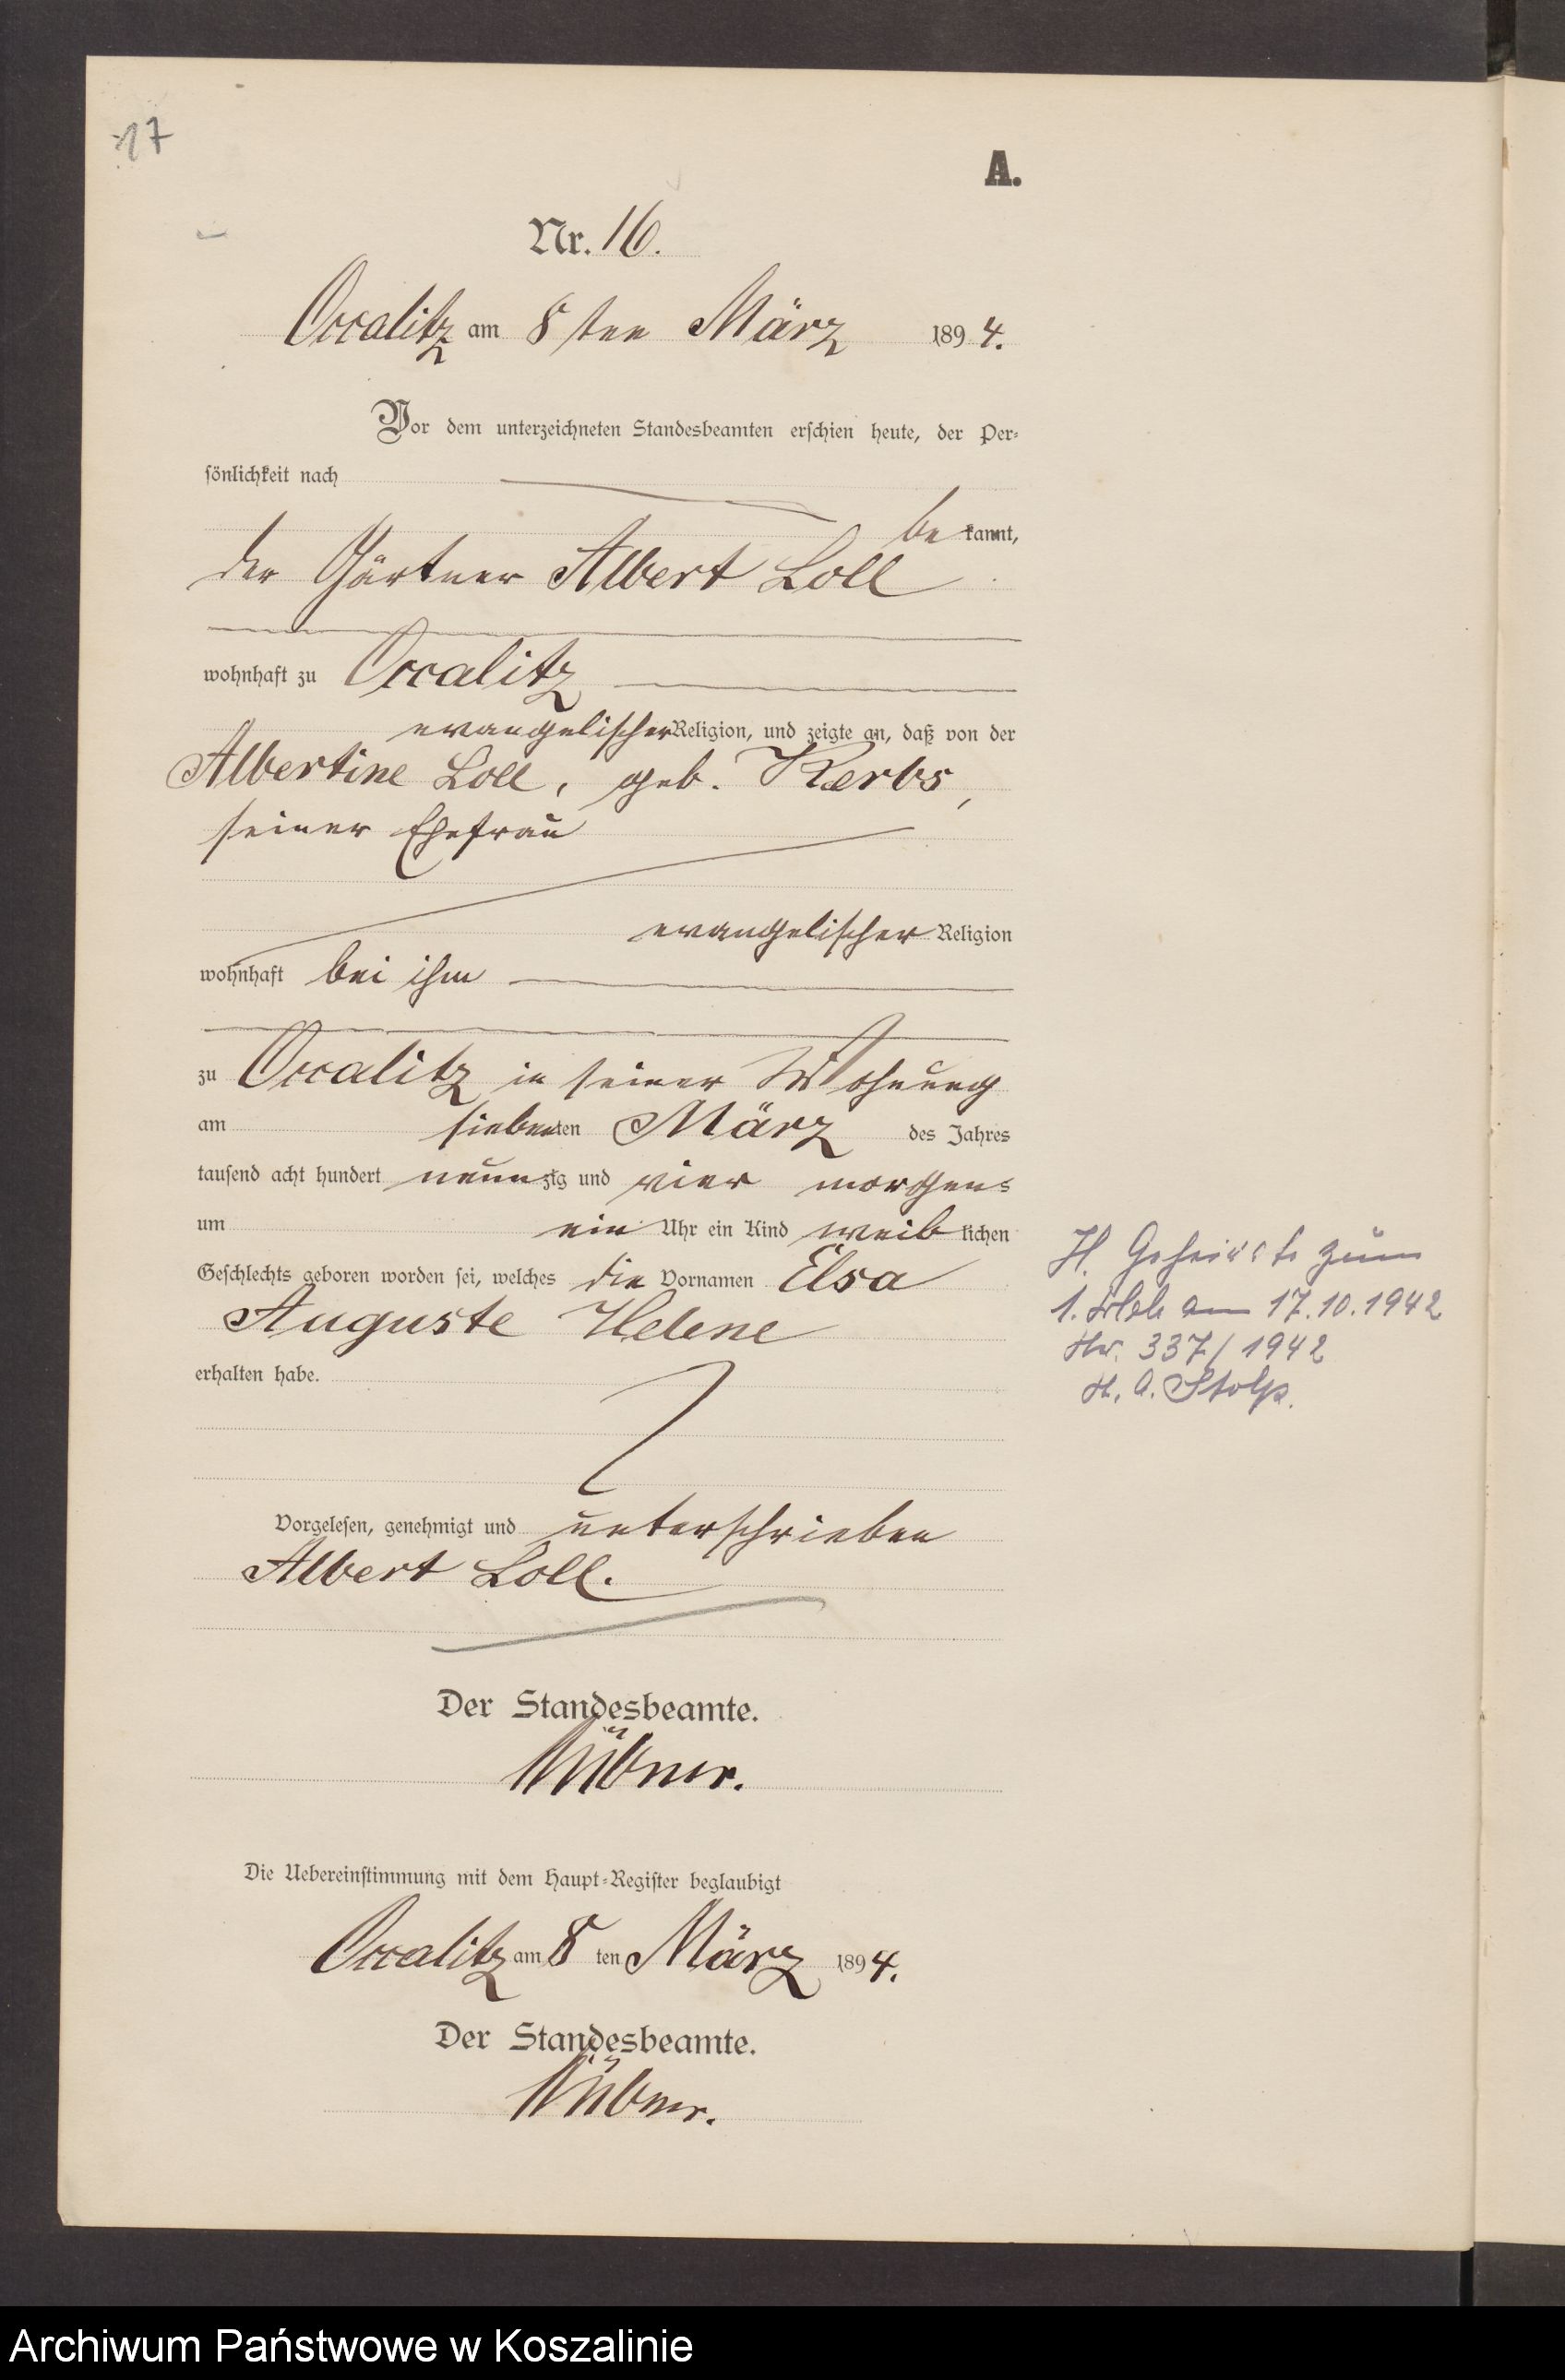 17
A.
Nr. 16.
Occalitz am 8 ten März 1894.
Vor dem unterzeichneten Standesbeamten erschien heute, der Per-
sönlichkeit nach
be kannt,
der Gärtner Albert Loll
wohnhaft zu Occalitz
evangelischer Religion, und zeigte an, daß von der
Albertine Loll, geb. Kerbs,
seiner Ehefrau
evangelischer Religion
wohnhaft bei ihm
zu Occalitz in seiner Wohnung
am siebenten März des Jahres
tausend acht hundert neunzig und vier morgens
um ein Uhr ein Kind weiblichen
Geschlechts geboren worden sei, welches die Vornamen Elsa
Auguste Helene
erhalten habe.
Vorgelesen, genehmigt und unterschrieben
Albert Loll.
Der Standesbeamte.
Die Uebereinstimmung mit dem Haupt-Register beglaubigt
Occalitz am 8 ten März 1894.
Der Standesbeamte.
H. Geheiratet zum
1. am 17.10.1942
Nr. 337/1942
St. A. Stolp.
Archiwum Państwowe w Koszalinie